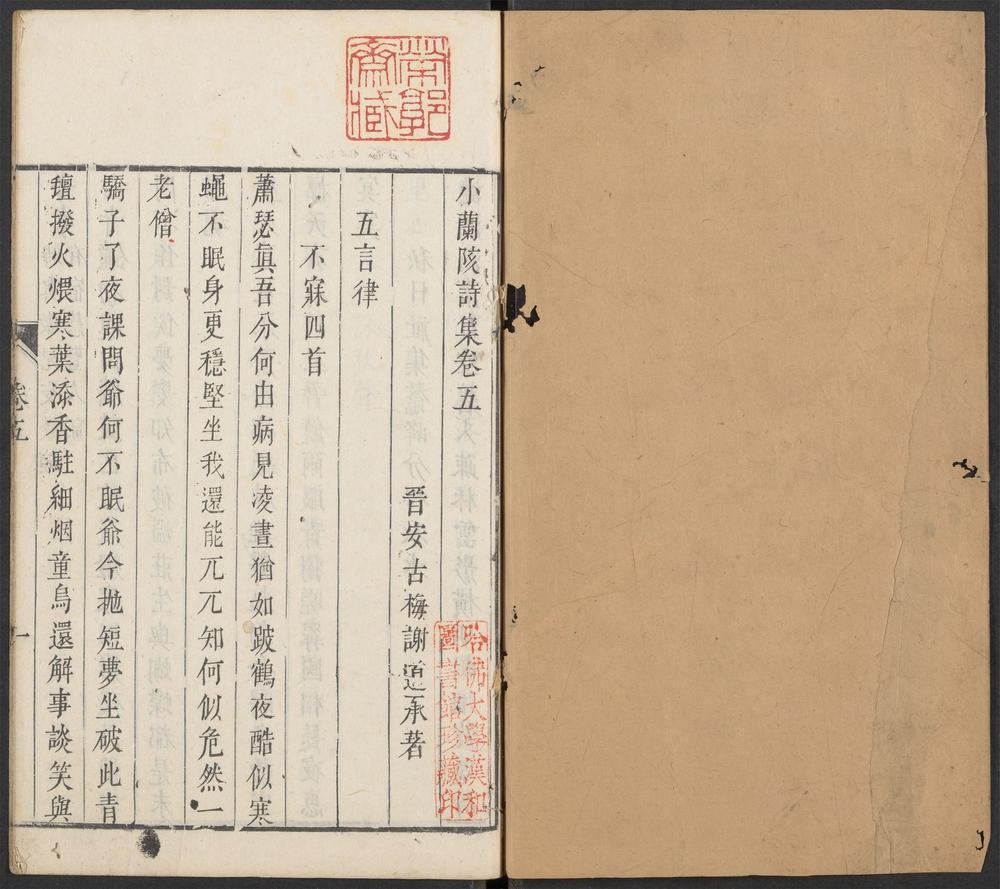 小蘭陔詩集卷五
晉安古梅謝道承著
五言律
不寐四首
蕭瑟真吾分何由病見凌晝猶如跛鶴夜酷似寒
蠅不眠身更穩堅坐我還能兀兀知何似危然一
老僧
驕子了夜課問爺何不眠爺今拋短夢坐破此青
氊撥火煨寒葉添香駐細烟童烏還解事談笑與
卷五
一
哈佛大學漢和
圖書館珍藏印